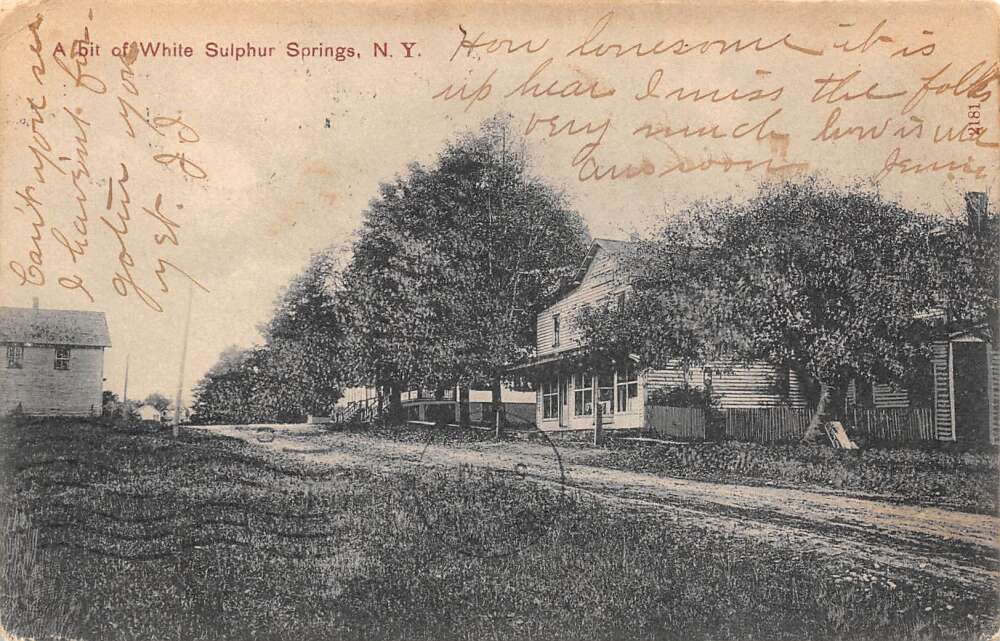 A bit of White Sulphur Springs, N. Y.
How lonesome it is
up hear I miss the folks
very much how is ma
ans soon Jennie
2181
Can't you see
I havent for-
gotin you
yet. J J